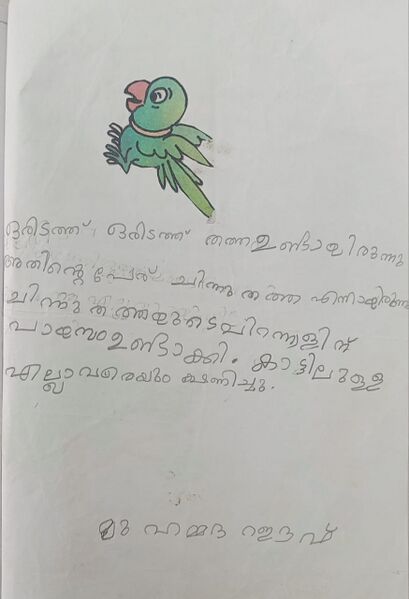 ഒരിടത്ത് ഒരിടത്ത് തത്ത ഉണ്ടായിരുന്നു
അതിൻ്റെ പേര് ചിന്നു തത്ത എന്നായിരുന്നു
ചിന്നു തത്തയുടെ പിറന്നാളിന്
പായസം ഉണ്ടാക്കി. കാട്ടിലുള്ള
എല്ലാവരെയും ക്ഷണിച്ചു.
മുഹമ്മദ്